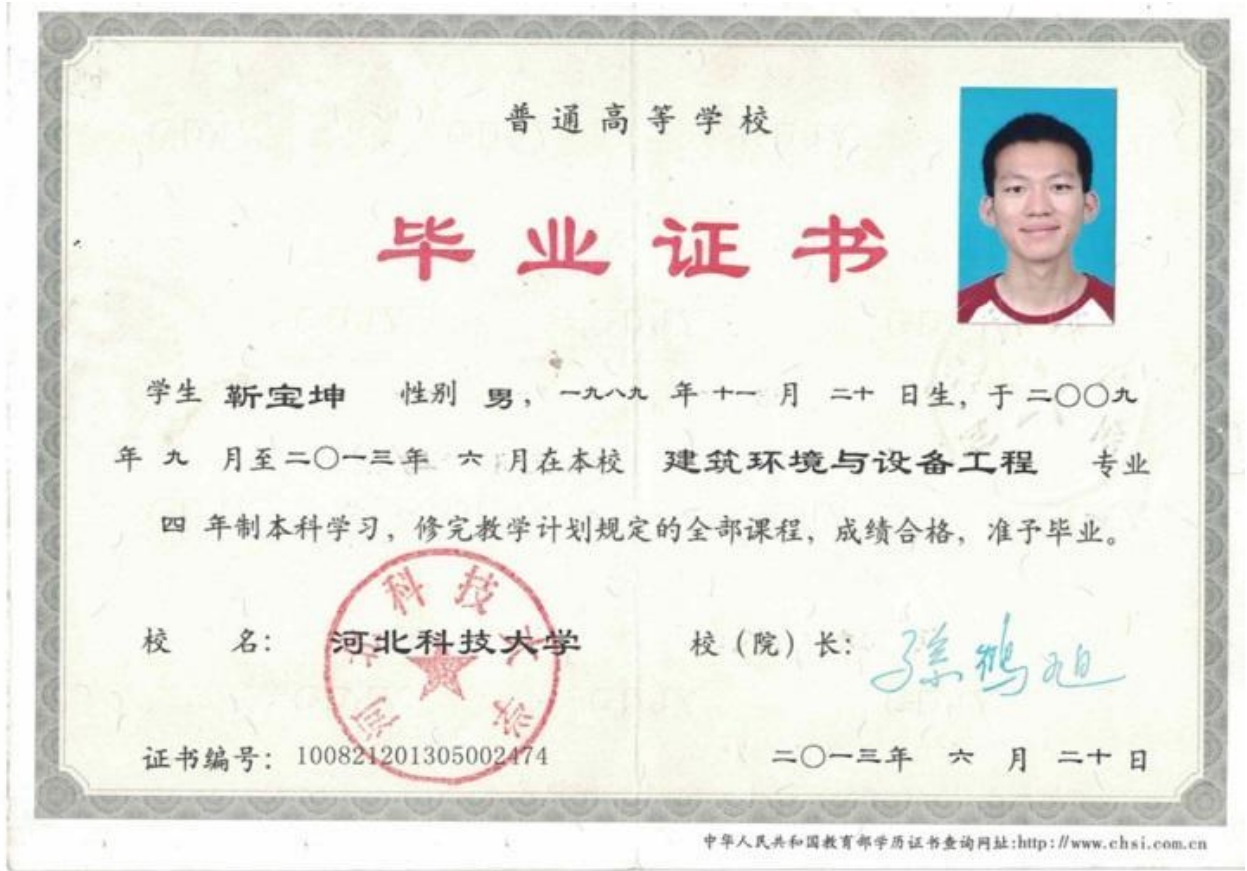 普通高等学校
毕业证书
学生 靳宝坤 性别 男，一九八九 年 十一 月 二十 日生，于二〇〇九
年 九 月至二〇一三年 六 月在本校 建筑环境与设备工程 专业
四 年制本科学习，修完教学计划规定的全部课程，成绩合格，准予毕业。
校 名： 河北科技大学 校（院）长： 孙鹤旭
河北科技大学
证书编号： 100821201305002474 二〇一三年 六 月 二十 日
中华人民共和国教育部学历证书查询网址:http://www.chsi.com.cn